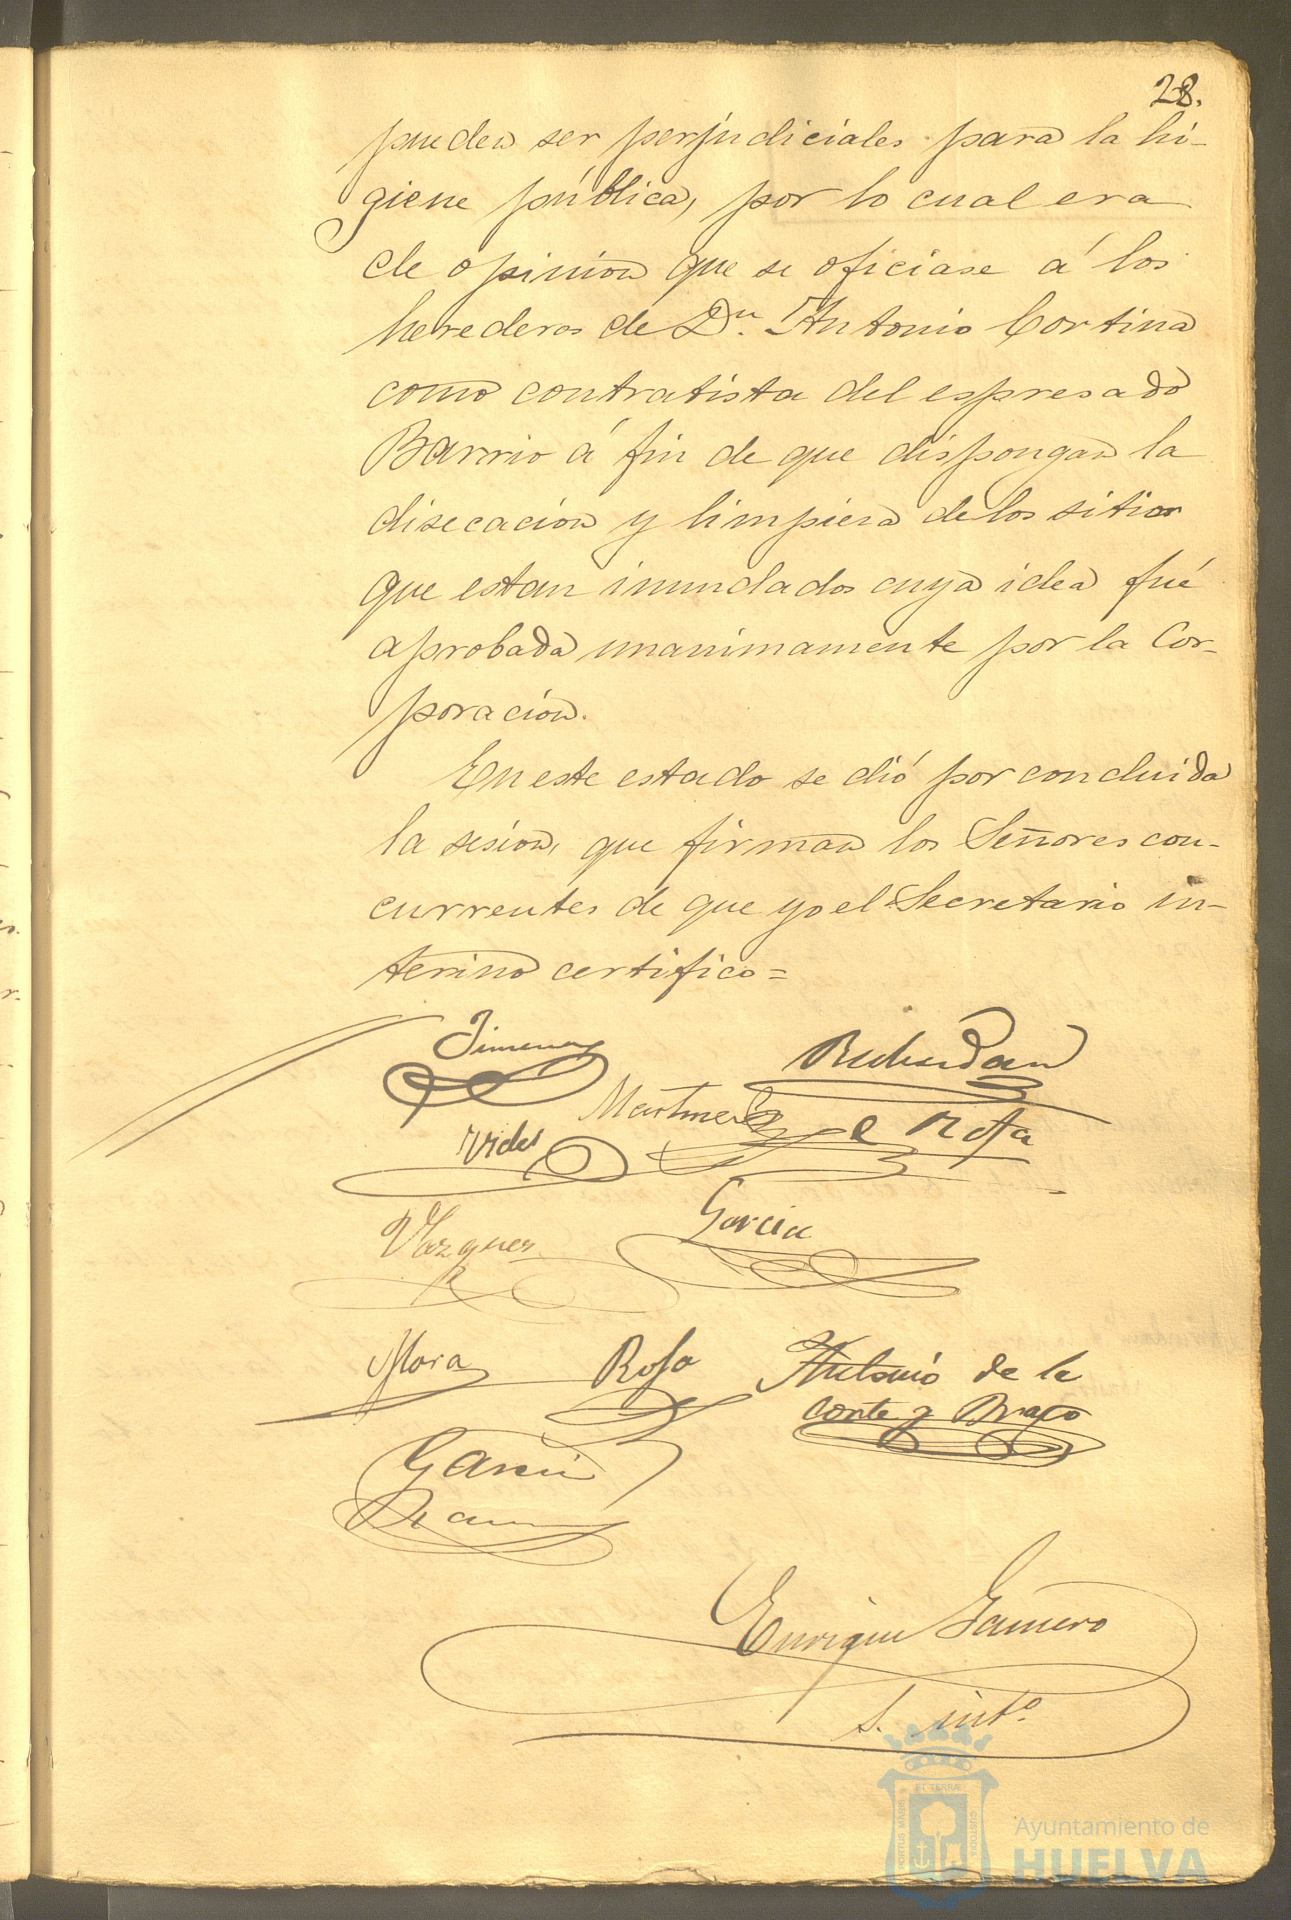 28.
pueden ser perjudiciales para la hi-
giene pública, por lo cual era
de opinion que se oficiase á los
herederos de Dn. Antonio Cortina
como contratista del espresado
Barrio á fin de que dispongan la
disecación y limpieza de los sitios
que estan inundados cuya idea fué
aprobada unanimamente por la Cor-
poración.
En este estado se dió por concluida
la sesion, que firman los Señores con-
currentes de que yo el Secretario in-
terino certifico=
Jimenez
Martinez
Vides
Vazquez
Garcia
Mora Rofa Antonio de la
Corte y Bravo
Garcia
Enrique Gamero
S. into.
ET TERRÆ
PORTUS MARIS
CUSTODIA
Ayuntamiento de
HUELVA